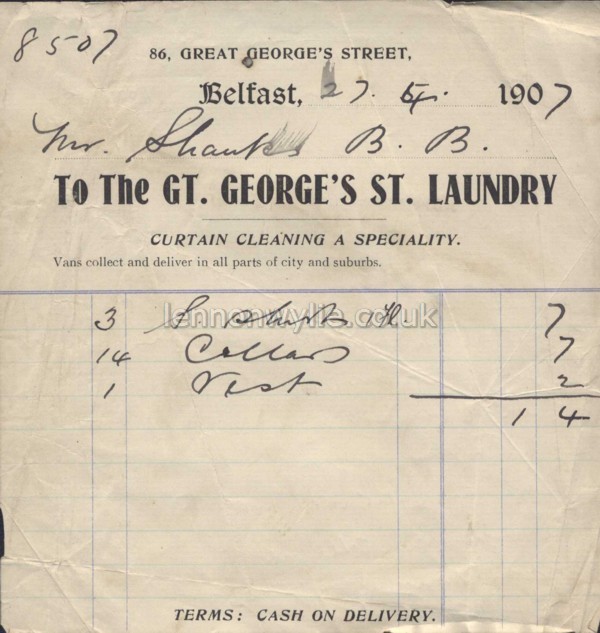 8507
86, GREAT GEORGE'S STREET,
Belfast, 27. 5. 1907
Mr. Shanks B. B.
To The GT. GEORGE'S ST. LAUNDRY
CURTAIN CLEANING A SPECIALITY.
Vans collect and deliver in all parts of city and suburbs.
lennonwylie.co.uk
3 S Shirts 7
14 Collars 7
1 Vest 2
1 4
TERMS: CASH ON DELIVERY.